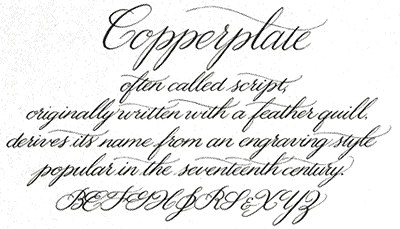 Copperplate
often called script,
originally written with a feather quill,
derives its name from an engraving style
popular in the seventeenth century.
BCFGHJRS&XYZ